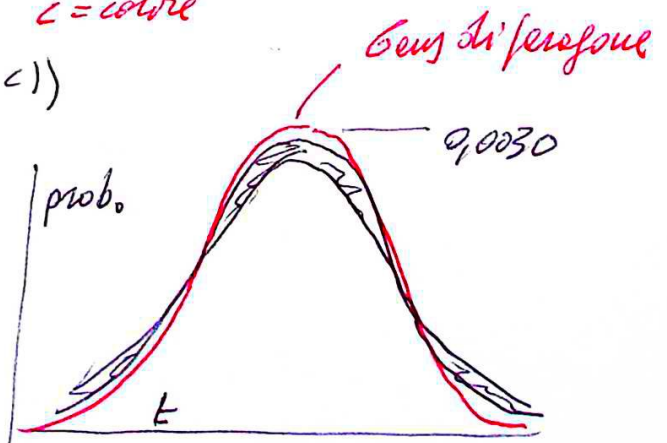 c = colore
Gauss di paragone
c))
0,0030
prob.
t